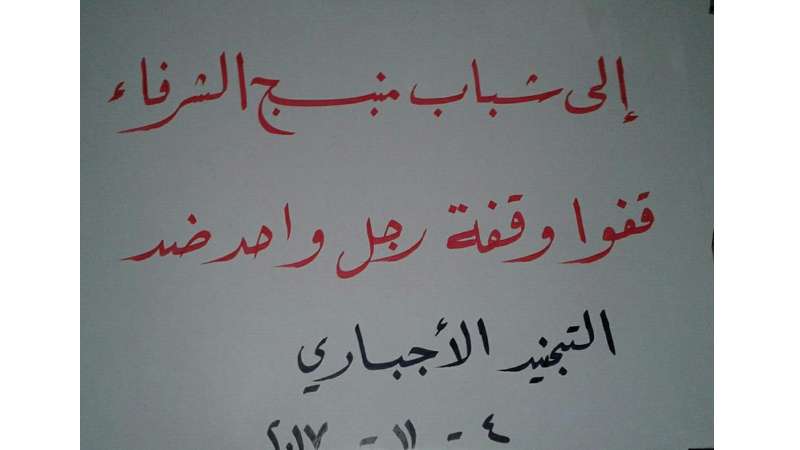 إلى شباب منبج الشرفاء
قفوا وقفة رجل واحد ضد
التجنيد الأجباري
٤ - ١١ - ٢٠١٧